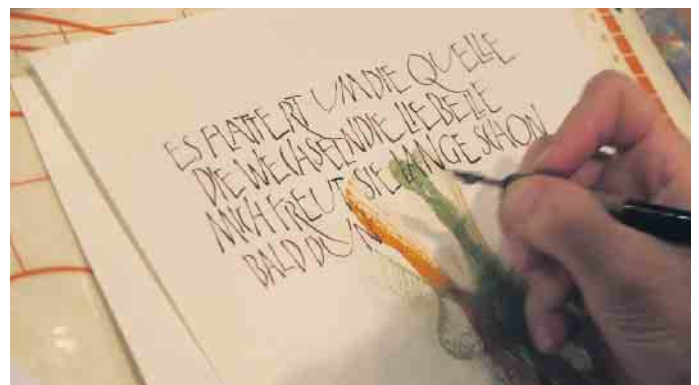 ES FLATTERT UM DIE QUELLE
DIE WECHSELNDE LIBELLE
MICH FREUT SIE LANGE SCHON
BALD DUN